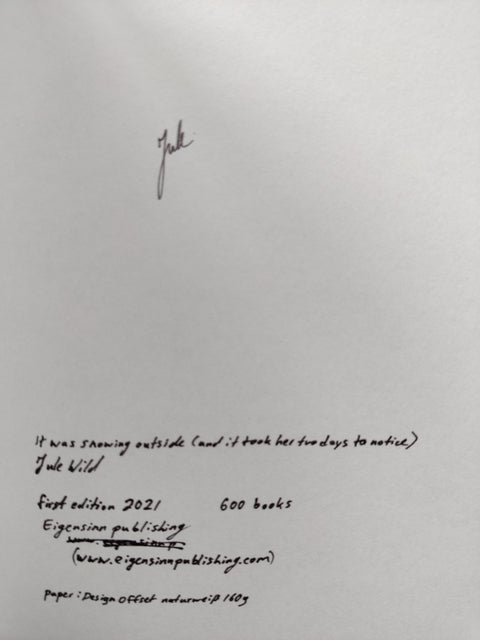 Jule
It was snowing outside (and it took her two days to notice)
Jule Wild
first edition 2021 600 books
Eigensinn publishing
(www.eigensinnpublishing.com)
Paper: Design Offset naturweiß 160g